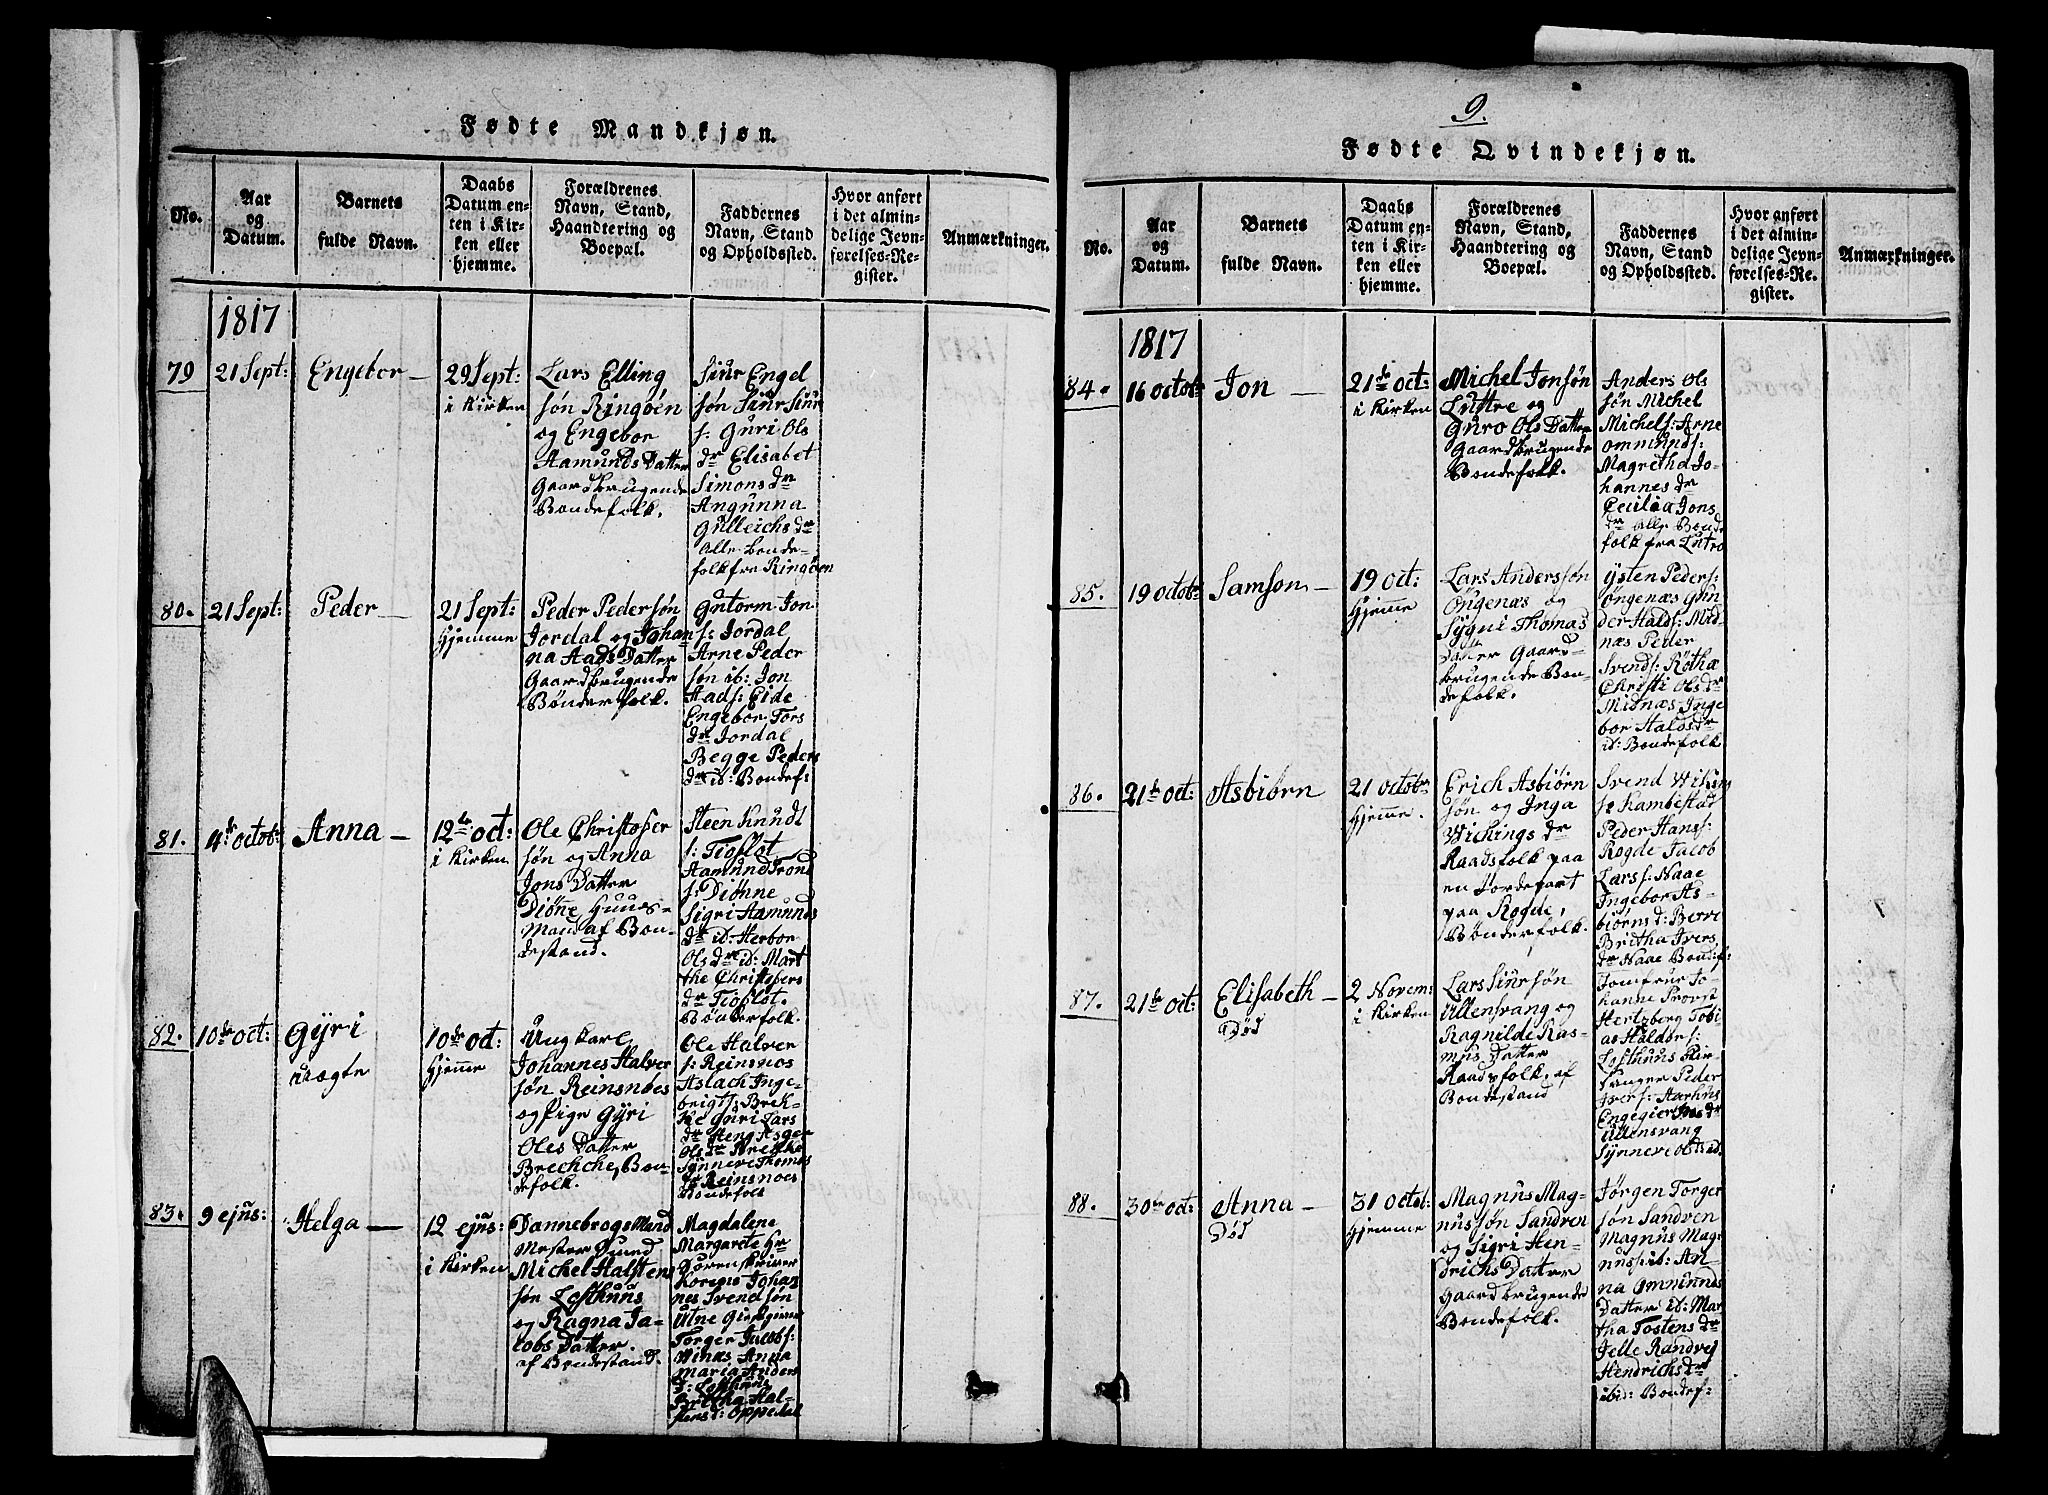 Fødte Mandkjøn.
No.
Aar og Datum.
Barnets fulde Navn.
Daabs Datum enten i Kirken eller hjemme.
Forældrenes Navn, Stand, Haandtering og Boepæl.
Faddernes Navn, Stand og Opholdssted.
Hvor anført i det almindelige Jevnførelses-Register.
Anmærkninger.
1817
79
21 Sept:
Engebor —
29 Sept:
i Kirken
Lars Elling
søn Ringøen
og Engebor
Aamunds Datter
Gaardbrugende
Bondefolk.
Siur Engel
søn Siur Siur
s: Guri Ols
dr Elisabet
Simons dr
Angunna
Gulleichs dr
Alle bonde-
folk fra Ringøen
80.
21 Sept:
Peder —
21 Sept:
Hjemme
Peder Pedersøn
Jordal og Johan
na Aads Datter
Gaardbrugende
Bønderfolk.
Gutorm Jon
s: Jordal
Arne Peder
søn ib: Jon
Aads: Eide
Engebor Tors
dr Jordal
Begge Peders
dr ib: Bondef:
81.
4de octob:
Anna —
12te oct:
i Kirken
Ole Christofer
søn og Anna
Jons Datter
Diønne Huus-
Mand af Bon-
destand.
Steen Knudt
s: Tioflot
Aamund Trond
s: Diønne
Sigri Aamunds
dr id: Herbor
Ols dr id: Mart
the Christofers
dr Tioflot.
Bønderfolk.
82.
10de oct:
Gyri
uægte
10de oct:
Hjemme
Ungkarl
Johannes Halver
søn Reinsnoes
og Pige Gyri
Oles Datter
Brechche, Bon-
defolk.
Ole Halver
s: Reinsnos
Aslach Inge-
brigts: Brek-
ke Guri Lars
dr
Ols dr Brekke
Synneve Thomas
dr Reinsnoes
Bondefolk
83.
9 ejus:
Helga —
12 ejus:
i Kirken
Dannebrogs Mand
Mester Smed
Michel Halsten
søn Lofthuus
og Ragna Ja-
cobs Datter.
af Bondestand.
Magdalene
Margarete Hr
Sorenskriver
Korens Johan
nes Svendsøn
Utne Giestgiver
Torger Jacobs:
Winæs Anna
Maria Anders
d: Lofthuus
Britha Hal-
stensd: Oppedal
9.
Fødte Qvindekjøn.
No.
Aar og Datum.
Barnets fulde Navn.
Daabs Datum enten i Kirken eller hjemme.
Forældrenes Navn, Stand, Haandtering og Boepæl.
Faddernes Navn, Stand og Opholdssted.
Hvor anført i det almindelige Jevnførelses-Register.
Anmærkninger.
1817
84.
16 octob:
Jon —
21de oct:
i Kirken
Michel Jonsøn
Luttre og
Guro Ols Datter
Gaardbrugende
Bondefolk.
Anders Ols
søn Michel
Michels: Arne
ommunds:
Magretha Jo-
hannes dr
Cecilia Jons
dr alle Bonde
folk fra Lutro
85.
19 octob:
Samson —
19 oct:
Hjemme
Lars Anderssøn
Ongenæs og
Sygni Thomas
Datter Gaard-
brugende Bon-
defolk.
ysten Peders:
Ongenæs Gun
der Halds: Mid-
næs Peder
Svends: Røthæ
Christi Ols dr
Midnæs Inge
bor Halds dr
id: Bondefolk
86.
21de oct:
Asbiørn
21 octobr
Hjemme.
Erich Asbiørn
søn og Inga
Wichings dr
Raadsfolk paa
en Jordepart
paa Rogde,
Bønderfolk.
Svend Wiking
s: Kambestad
Peder Hans:
Rogde Jacob
Lars: Naae
Ingebor As-
biørns d: Berve
Britha Ivers
dr Naae Bondef:
87.
21de oct:
Elisabeth —
Død
2 Novem:
i Kirken
Lars Siursøn
Ullensvang og
Ragnilde Ras-
mus Datter
Raadsfolk, af
Bondestand
Jomfrue Jo-
hanne Provst
Hertzberg Tobi-
as Haldors:
Lofthuus Kir-
Sanger Peder
Ivers: Aarhuus
Ullensvang
Synneve Olsd: id.
88.
30de oct:
Anna —
Død
31 octob:
Hjemme
Magnus Mag-
nussøn Sandven
og Sigri Hen-
drichs Datter
Gaardbrugende
Bondefolk.
Jørgen Torger
søn Sandven
Magnus Mag-
nuss: ib: An-
na Omunds
Datter ib: Mar
tha Tostens dr
Jelle Randvej
Hendrichs dr
ibid: Bondef: